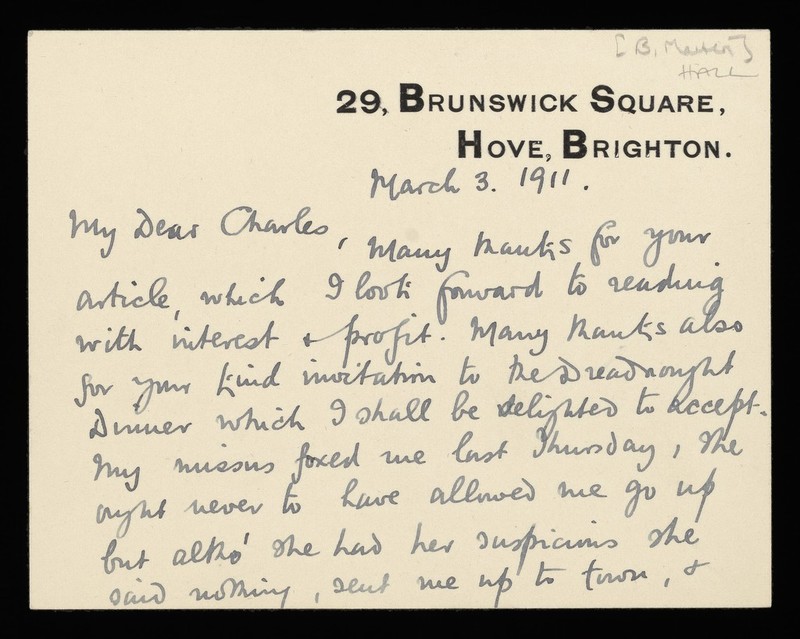 [B. Mallet]
HALL
29, BRUNSWICK SQUARE,
HOVE, BRIGHTON.
March 3. 1911.
My Dear Charles,
Many thanks for your
article, which I look forward to reading
with interest & profit. Many thanks also
for your kind invitation to the Dreadnought
Dinner which I shall be delighted to accept.
My missus foxed me last Thursday, she
ought never to have allowed me go up
but altho' she had her suspicions she
said nothing, sent me up to town, &